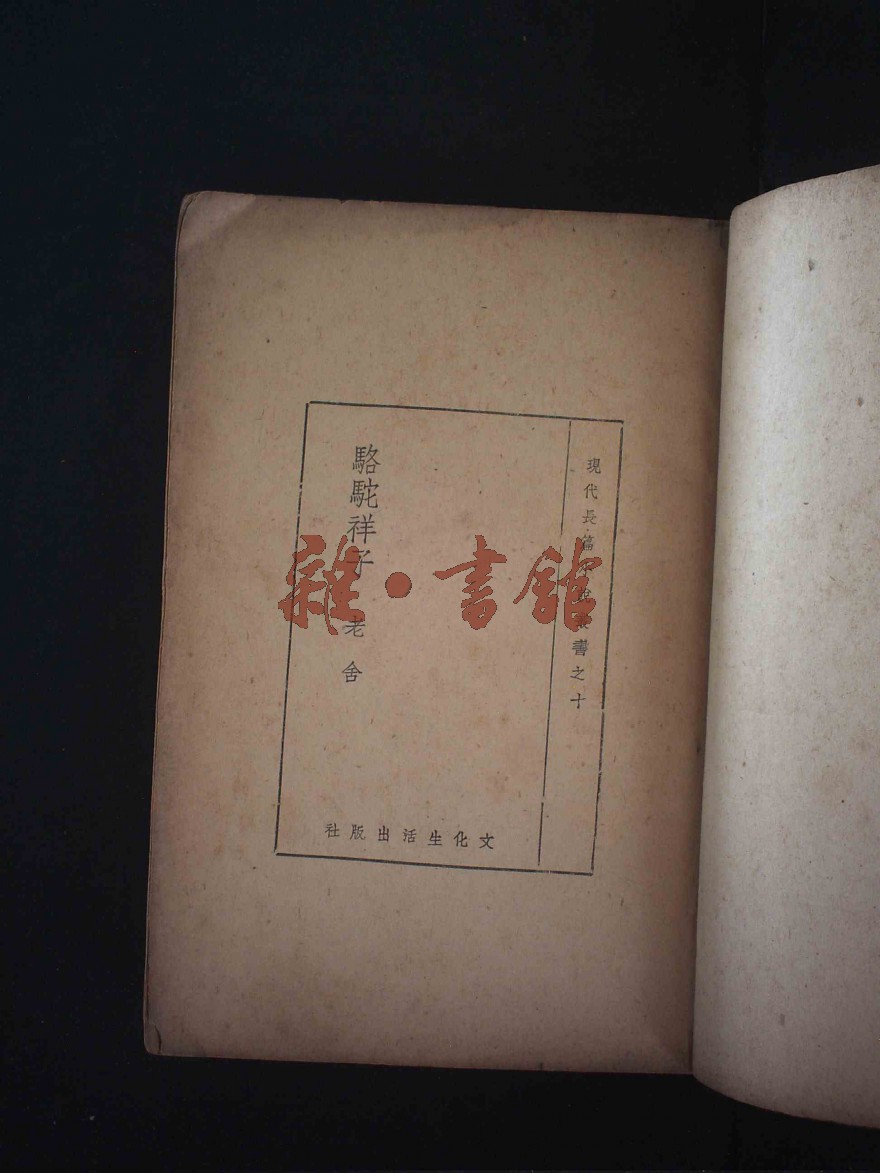 現代長篇小說叢書之十
駱駝祥子
老舍
文化生活出版社
雜·書館